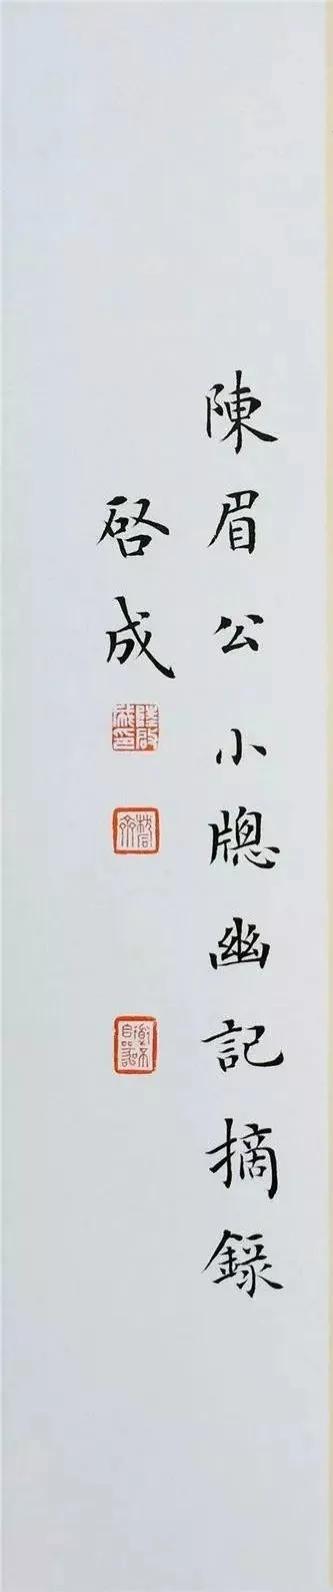 陳眉公小牕幽記摘錄
啓成